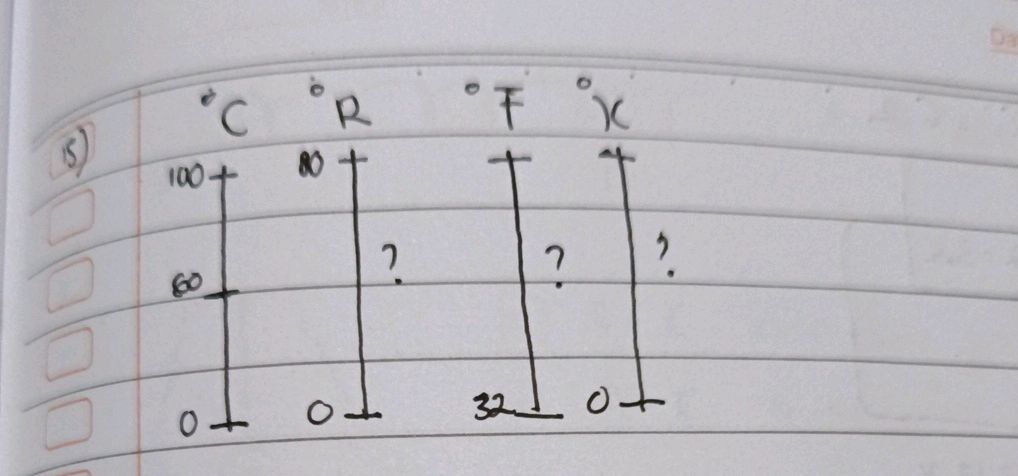 15)
°C °R °F °K
100 80
60 ? ? ?
0 0 32 0